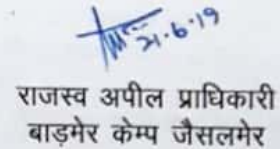 21.6.19
राजस्व अपील प्राधिकारी
बाड़मेर केम्प जैसलमेर